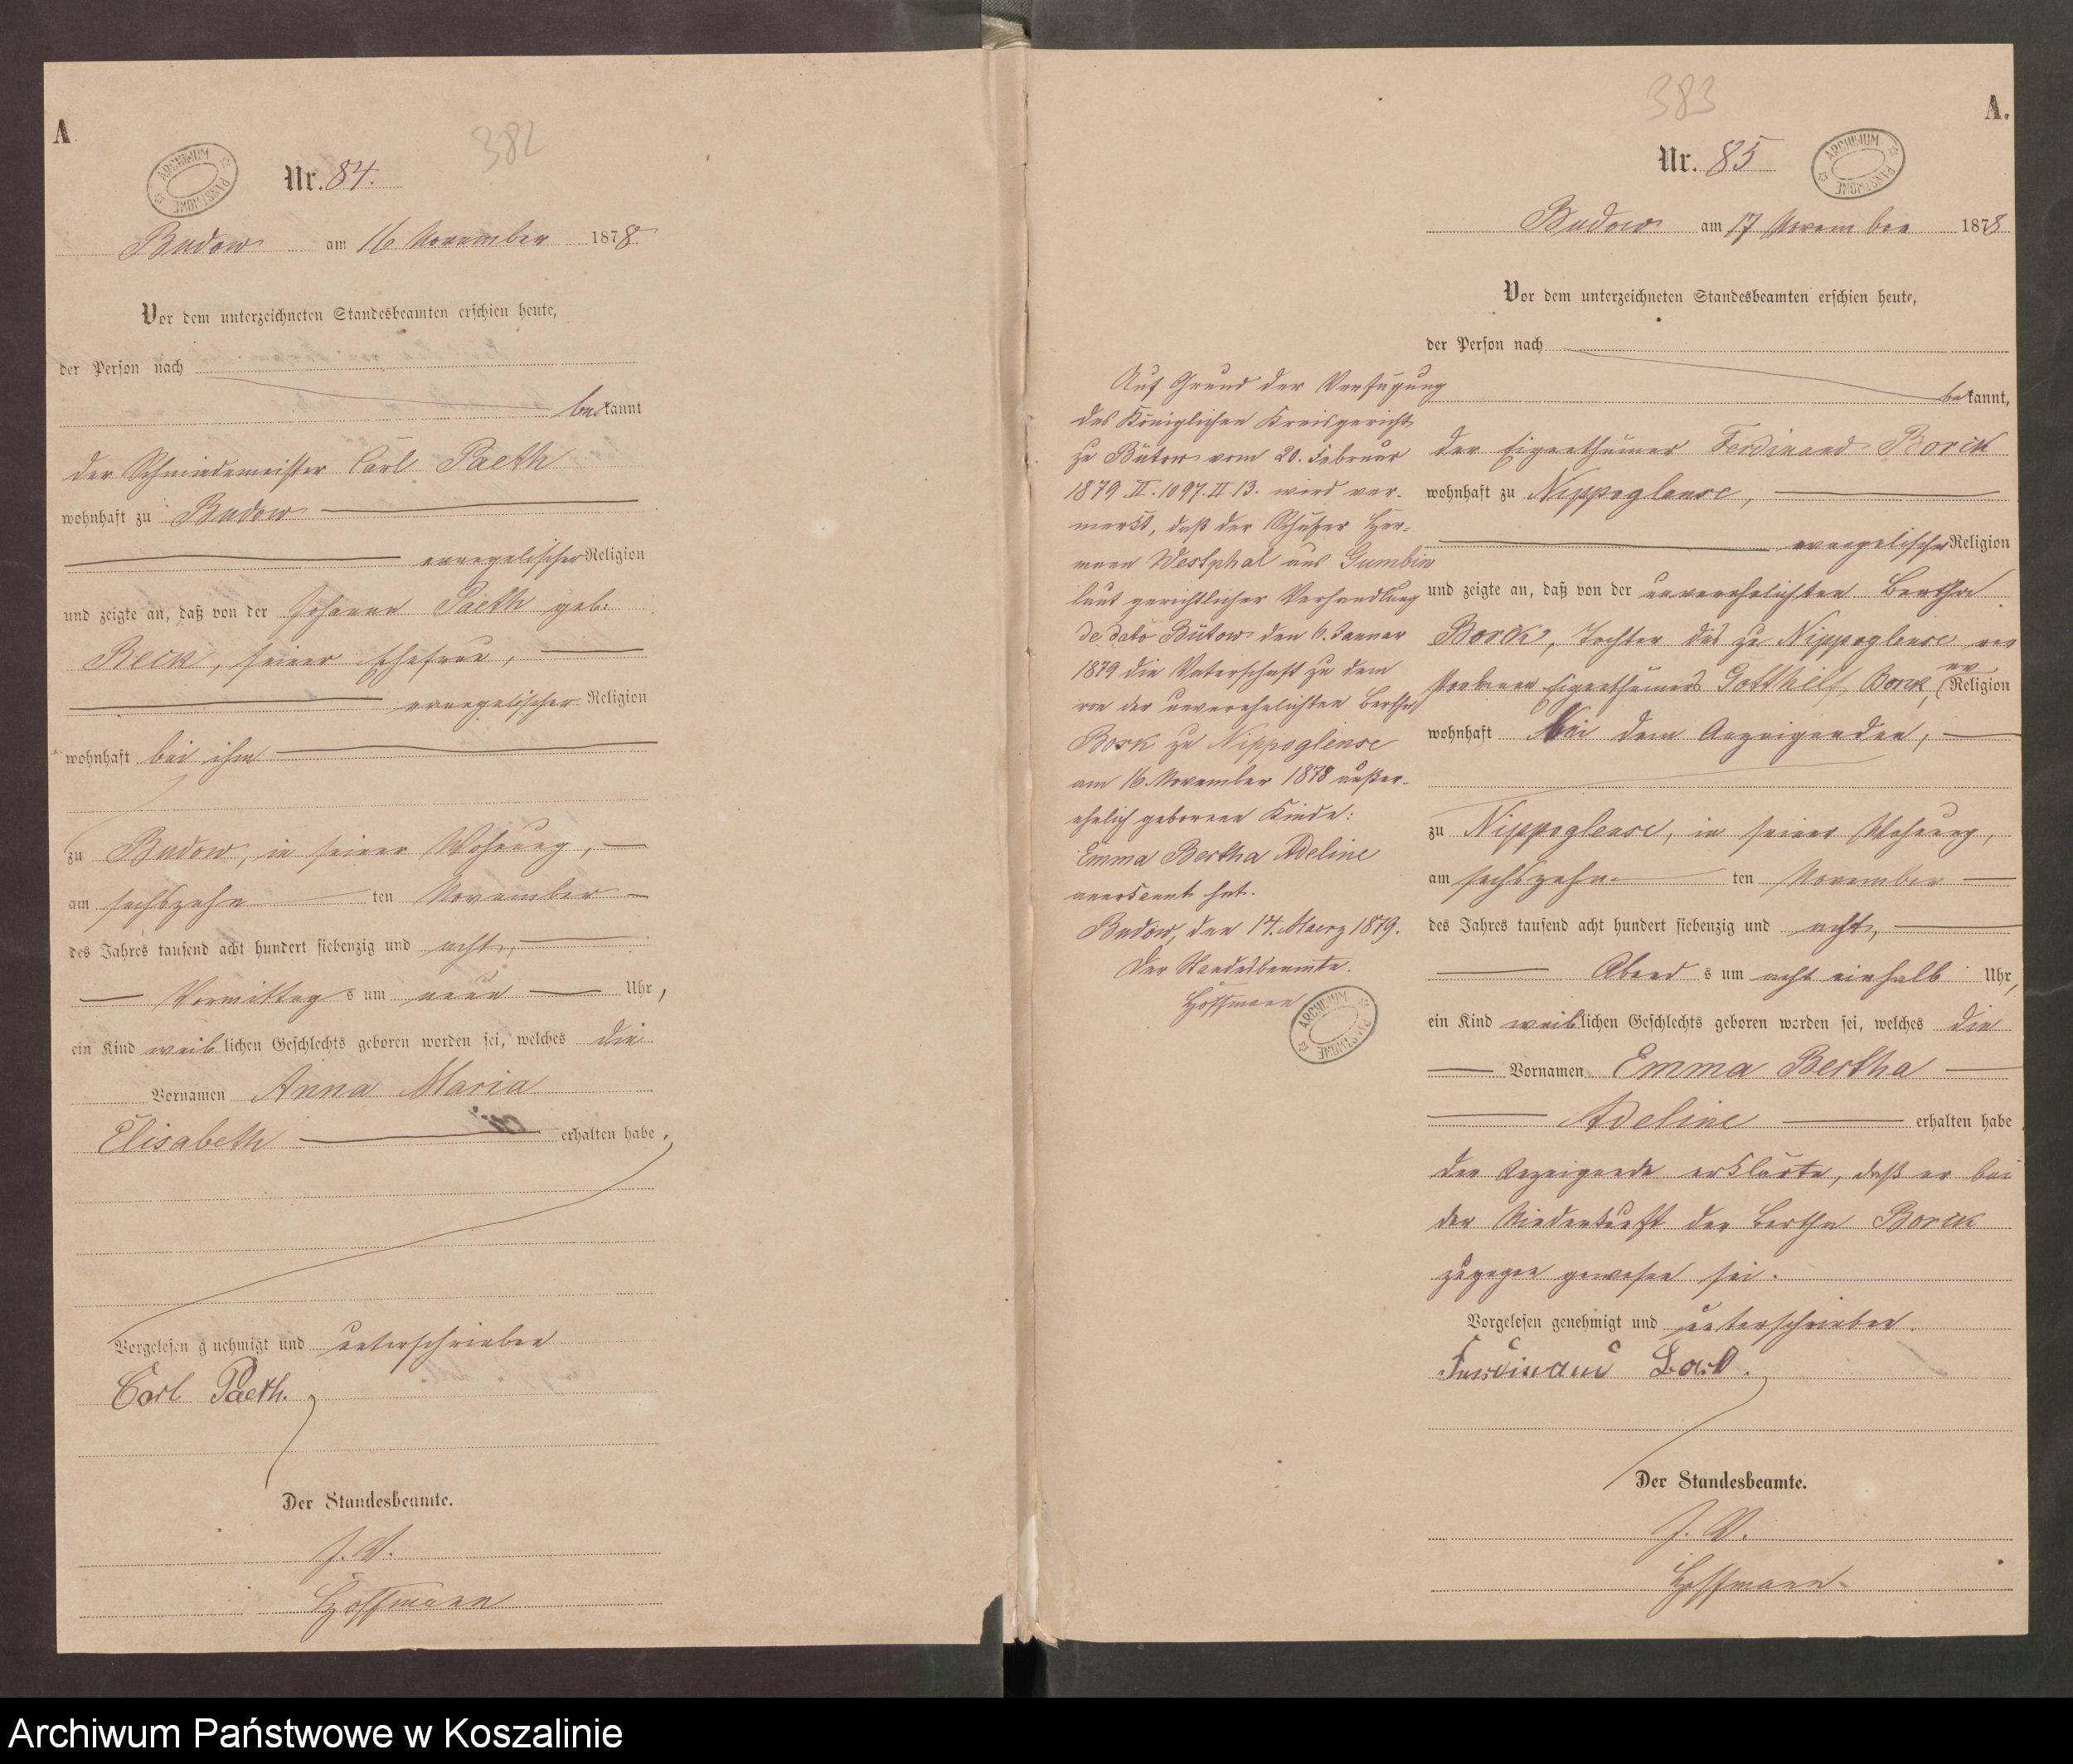 A
382
ARCHIWUM PAŃSTWOWE
Nr. 84.
Budow am 16 November 1878.
Vor dem unterzeichneten Standesbeamten erschien heute,
der Person nach
bekannt
der Schmiedemeister Carl Paeth
wohnhaft zu Budow
evangelischer Religion
und zeigte an, daß von der Johanne Paeth geb.
Reck, seiner Ehefrau,
evangelischer Religion
wohnhaft bei ihm
zu Budow, in seiner Wohnung,
am sechszehn ten November
des Jahres tausend acht hundert siebenzig und acht,
Vormittag s um neun Uhr,
ein Kind weiblichen Geschlechts geboren worden sei, welches die
Vornamen Anna Maria
Elisabeth erhalten habe.
Vorgelesen g nehmigt und unterschrieben
Carl Paeth.
Der Standesbeamte.
J. V.
Hoffmann
383
A.
Nr. 85
ARCHIWUM PAŃSTWOWE
Budow am 17 November 1878
Vor dem unterzeichneten Standesbeamten erschien heute,
der Person nach
bekannt,
der Eigenthümer Ferdinand Borck
wohnhaft zu Nippoglense,
evangelischer Religion
und zeigte an, daß von der unverehelichten Bertha
Borck, Tochter des zu Nippoglense ver
storbenen Eigenthümers Gotthilf Borck, (ev Religion
wohnhaft bei dem Anzeigenden,
zu Nippoglense, in seiner Wohnung,
am sechszehn ten November
des Jahres tausend acht hundert siebenzig und acht,
Abend s um acht einhalb Uhr,
ein Kind weiblichen Geschlechts geboren worden sei, welches die
Vornamen Emma Bertha
Adeline erhalten habe
Der Anzeigende erklärte, daß er bei
der Niederkunft der Bertha Borck
zugegen gewesen sei.
Vorgelesen genehmigt und unterschrieben.
Ferdinand Bork.
Der Standesbeamte.
J. V.
Hoffmann
Auf Grund der Verfügung
des Königlichen Kreisgericht
zu Bütow vom 20. Februar
1879 II. 1097. II. 13. wird ver-
merkt, daß der Schäfer Her-
mann Westphal aus Gumbin
laut gerichtlicher Verhandlung
de dato Bütow den 6. Januar
1879 die Vaterschaft zu dem
von der unverehelichten Bertha
Bork zu Nippoglense
am 16. November 1878 außer-
ehelich geborenen Kinde:
Emma Bertha Adeline
anerkannt hat.
Budow, den 14. Maerz 1879.
Der Standesbeamte.
Hoffmann
ARCHIWUM PAŃSTWOWE
Archiwum Państwowe w Koszalinie